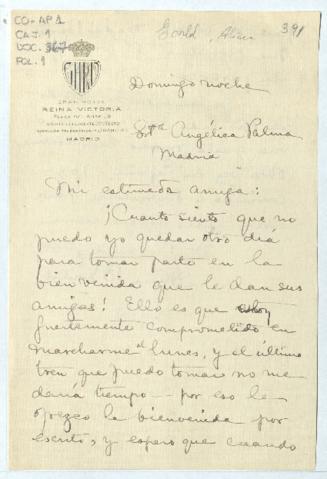 CO-AP 1
CAJ. 1
DOC.
FOL. 1
Gould, Alice
391
GRAN HOTEL
REINA VICTORIA
MADRID
Domingo noche
Srta Angélica Palma
Madrid
Mi estimada amiga:
¡Cuanto siento que no
puedo yo quedar otro día
para tomar parte en la
bienvenida que le dan sus
amigas! Ello es que estoy
fuertemente comprometido en
marcharme el lunes, y el último
tren que puedo tomar no me
daría tiempo — por eso le
ofrezco la bienvenida por
escrito, y espero que cuando